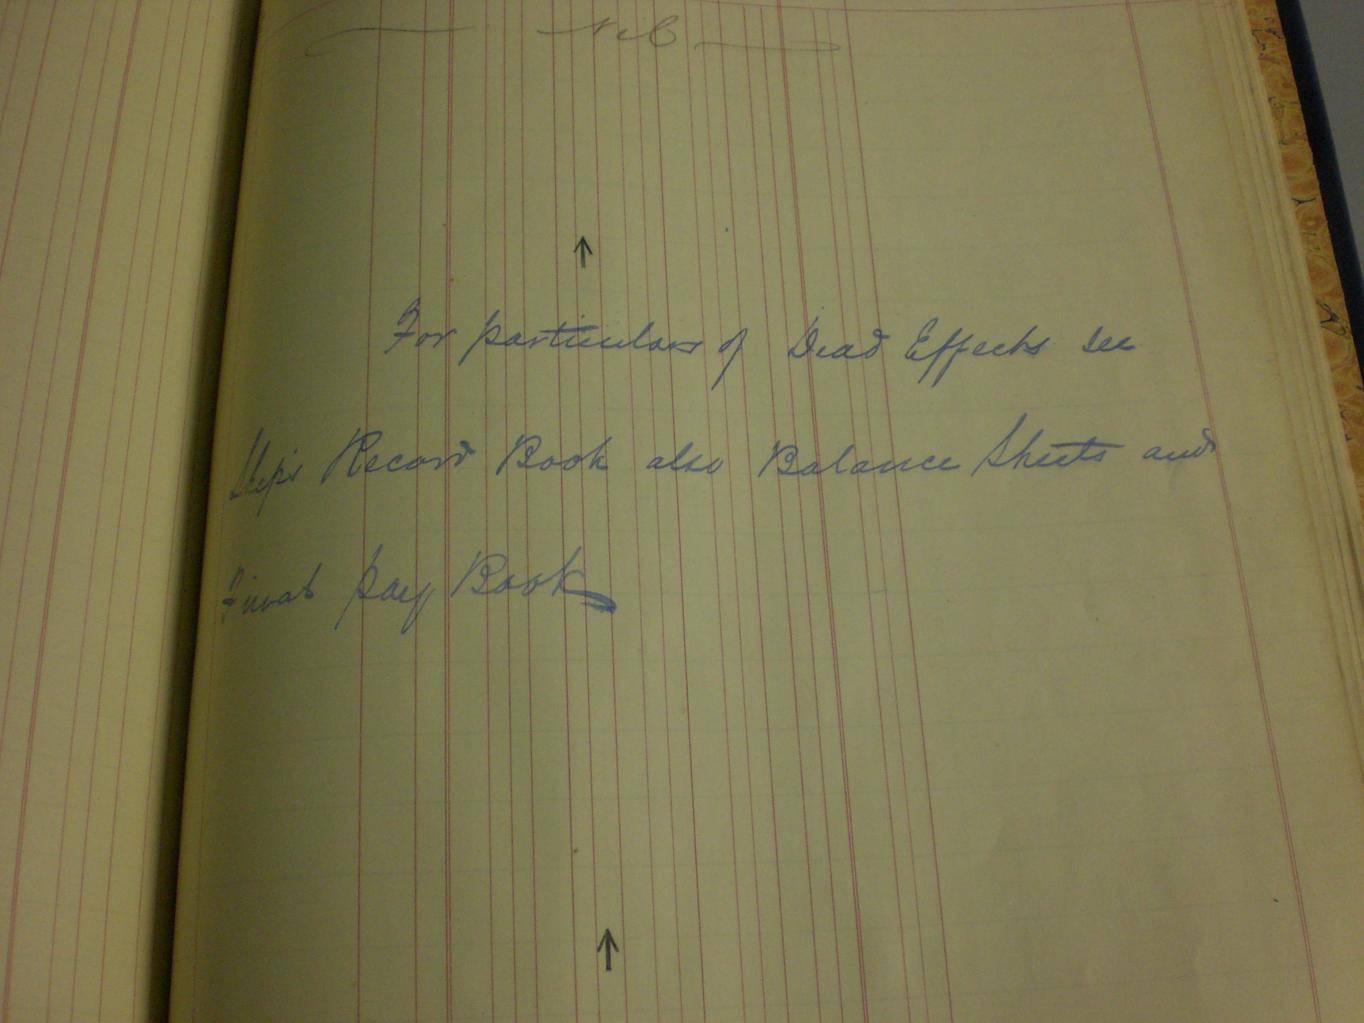 N.B.
For particulars of Dead Effects see
Record Book also Balance Sheets and
Final Pay Book